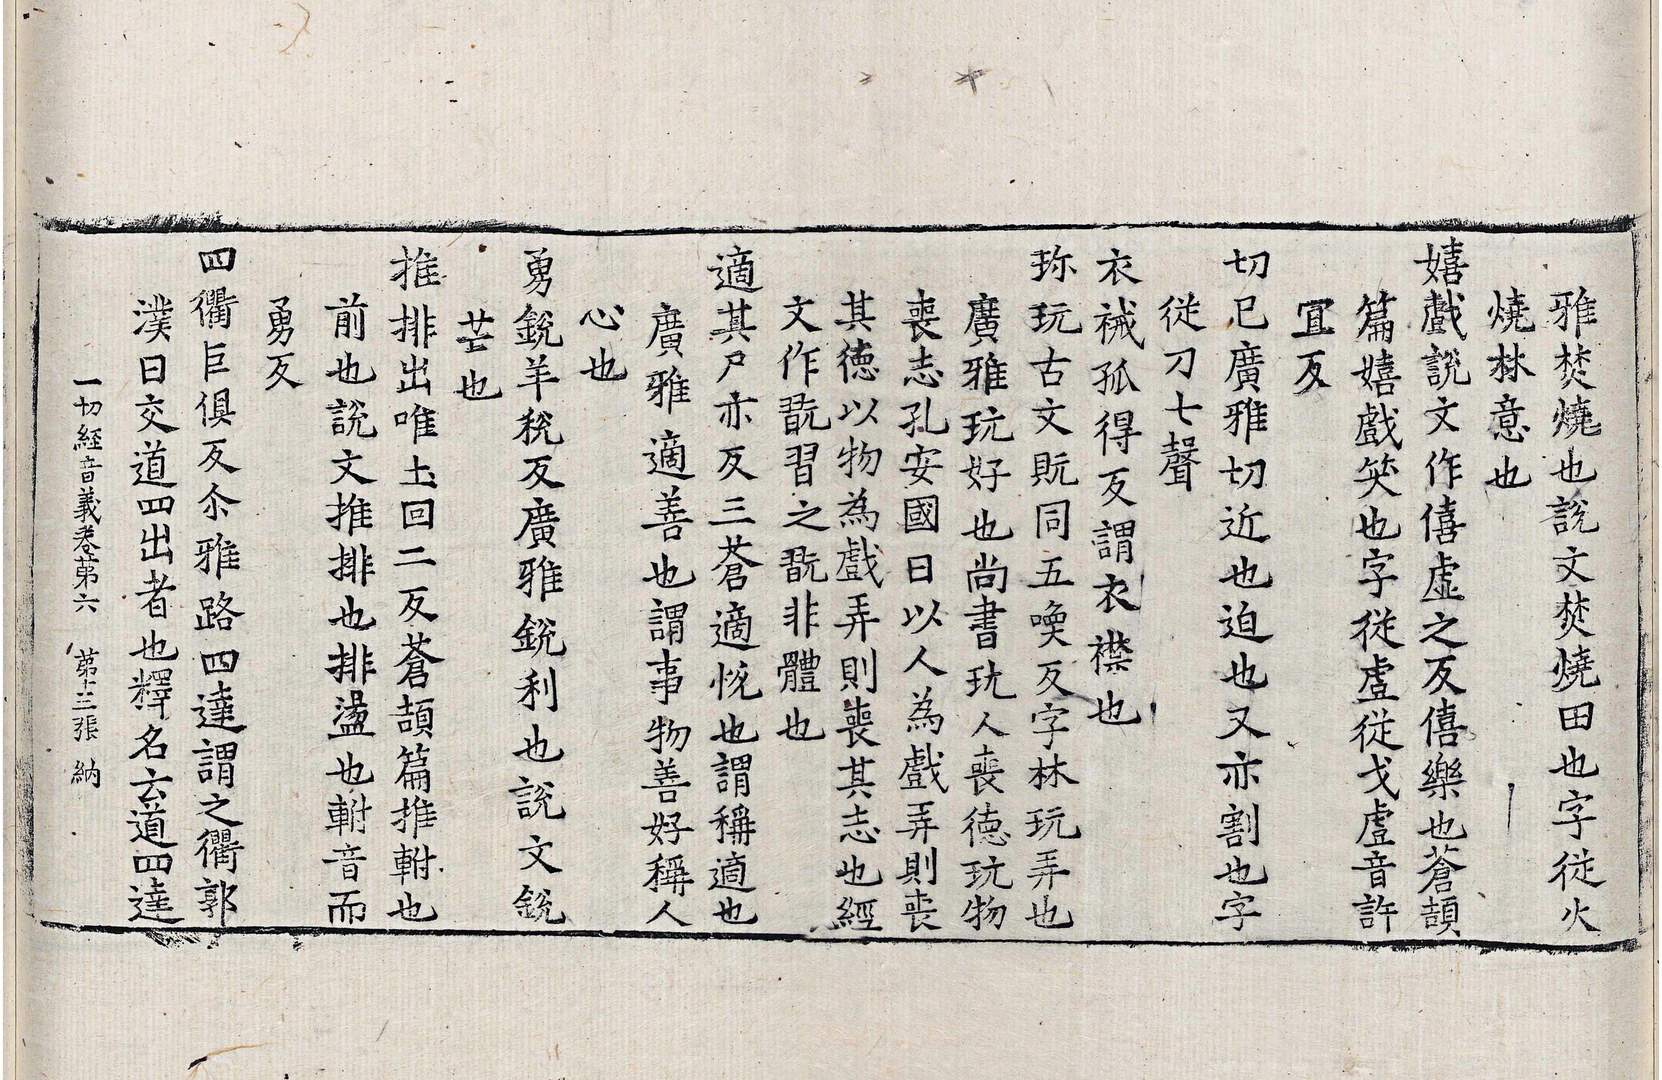 雅焚燒也說文焚燒田也字從火
燒林意也
嬉戲說文作僖虛之反僖樂也蒼頡
篇嬉戲笑也字從䖒從戈䖒音許
冝反
切已廣雅切近也迫也又亦割也字
從刀七聲
衣祴孤得反謂衣襟也
珎玩古文貦同五喚反字林玩弄也
廣雅玩好也尚書玩人喪德玩物
喪志孔安國曰以人為戲弄則喪
其德以物為戲弄則喪其志也經
文作翫習之翫非體也
適其尸亦反三蒼適悅也謂稱適也
廣雅適善也謂事物善好稱人
心也
勇銳羊稅反廣雅銳利也說文銳
芒也
推排出唯土回二反蒼頡篇推軵也
前也說文推排也排盪也軵音而
勇反
四衢巨俱反尒雅路四達謂之衢郭
璞曰交道四出者也釋名云道四達
一切經音義卷第六 第十三張 納